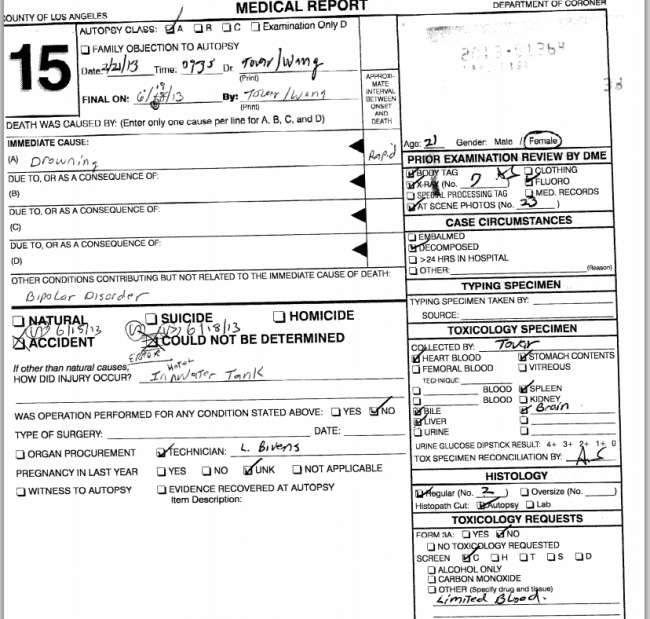 COUNTY OF LOS ANGELES MEDICAL REPORT DEPARTMENT OF CORONER
AUTOPSY CLASS: A B C Examination Only D
15
FAMILY OBJECTION TO AUTOPSY
Date: 2/21/13 Time: 0735 Dr. Tovar/Wang
(Print)
FINAL ON: 6/18/13 By: Tovar/Wang
(Print)
APPROXI-
MATE
INTERVAL
BETWEEN
ONSET
AND
DEATH
DEATH WAS CAUSED BY: (Enter only one cause per line for A, B, C, and D)
IMMEDIATE CAUSE:
(A) Drowning Rapid
DUE TO, OR AS A CONSEQUENCE OF:
(B)
DUE TO, OR AS A CONSEQUENCE OF:
(C)
DUE TO, OR AS A CONSEQUENCE OF:
(D)
OTHER CONDITIONS CONTRIBUTING BUT NOT RELATED TO THE IMMEDIATE CAUSE OF DEATH:
Bipolar Disorder
NATURAL SUICIDE HOMICIDE
6/15/13 6/18/13
ACCIDENT COULD NOT BE DETERMINED
ERROR
If other than natural causes,
Hotel
HOW DID INJURY OCCUR? In Water Tank
WAS OPERATION PERFORMED FOR ANY CONDITION STATED ABOVE: YES NO
TYPE OF SURGERY: DATE:
ORGAN PROCUREMENT TECHNICIAN: L. Bivens
PREGNANCY IN LAST YEAR YES NO UNK NOT APPLICABLE
WITNESS TO AUTOPSY EVIDENCE RECOVERED AT AUTOPSY
Item Description:
2013-01364
38
Age: 21 Gender: Male / Female
PRIOR EXAMINATION REVIEW BY DME
BODY TAG CLOTHING
X-RAY (No. 7 ) FLUORO
SPECIAL PROCESSING TAG MED. RECORDS
AT SCENE PHOTOS (No. 23 )
CASE CIRCUMSTANCES
EMBALMED
DECOMPOSED
>24 HRS IN HOSPITAL
OTHER: (Reason)
TYPING SPECIMEN
TYPING SPECIMEN TAKEN BY:
SOURCE:
TOXICOLOGY SPECIMEN
COLLECTED BY: Tovar
HEART BLOOD STOMACH CONTENTS
FEMORAL BLOOD VITREOUS
TECHNIQUE:
BLOOD SPLEEN
BLOOD KIDNEY
BILE Brain
LIVER
URINE
URINE GLUCOSE DIPSTICK RESULT: 4+ 3+ 2+ 1+ 0
TOX SPECIMEN RECONCILIATION BY: A.S
HISTOLOGY
Regular (No. 2 ) Oversize (No. )
Histopath Cut: Autopsy Lab
TOXICOLOGY REQUESTS
FORM 3A: YES NO
NO TOXICOLOGY REQUESTED
SCREEN C H T S D
ALCOHOL ONLY
CARBON MONOXIDE
OTHER (Specify drug and tissue)
Limited Blood.